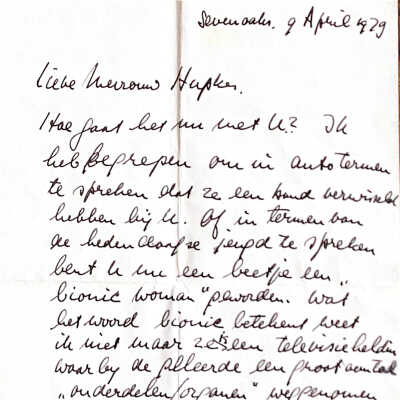 Sevenoaks. 9 April 1979
Lieve Mevrouw Hupkes.
Hoe gaat het nu met U? Ik
heb begrepen om in autotermen
te spreken dat ze een band verwisseld
hebben bij U. Of in termen van
de hedendaagse jeugd te spreken
bent U nu een beetje een „
bionic woman" geworden. Wat
het woord bionic betekent weet
ik niet maar is een televisieheldin
waarbij de een groot aantal
„onderdelen/organen" weggenomen